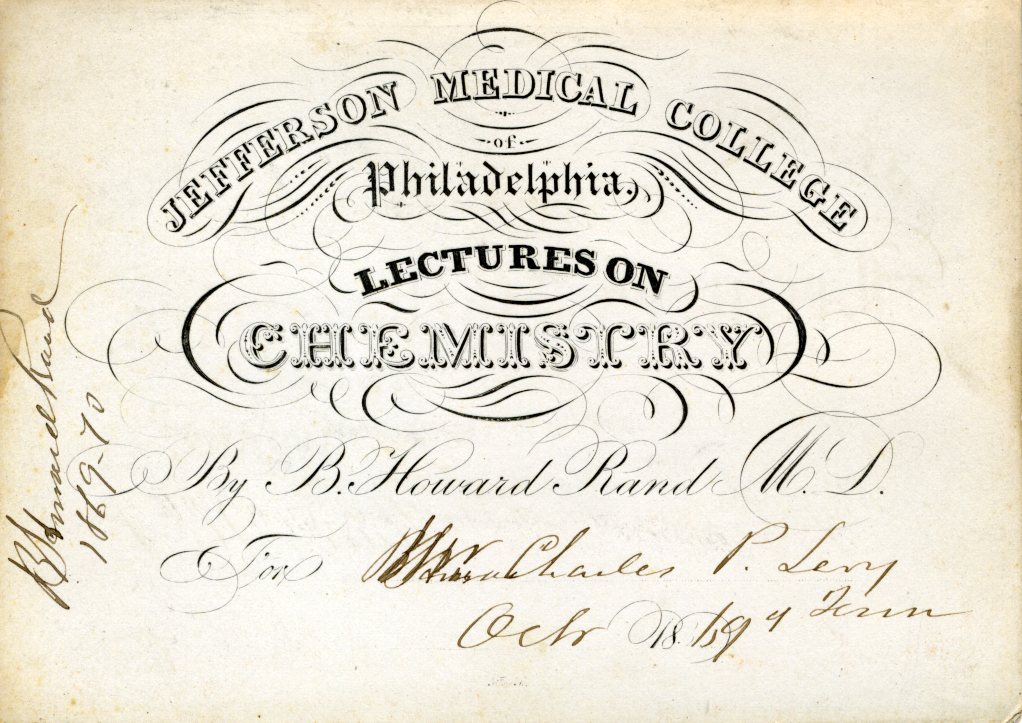 JEFFERSON MEDICAL COLLEGE
of
Philadelphia,
LECTURES ON
CHEMISTRY
By B. Howard Rand M. D.
For Charles P. Levy
Oct 18 69
B Howard Rand
1869-70